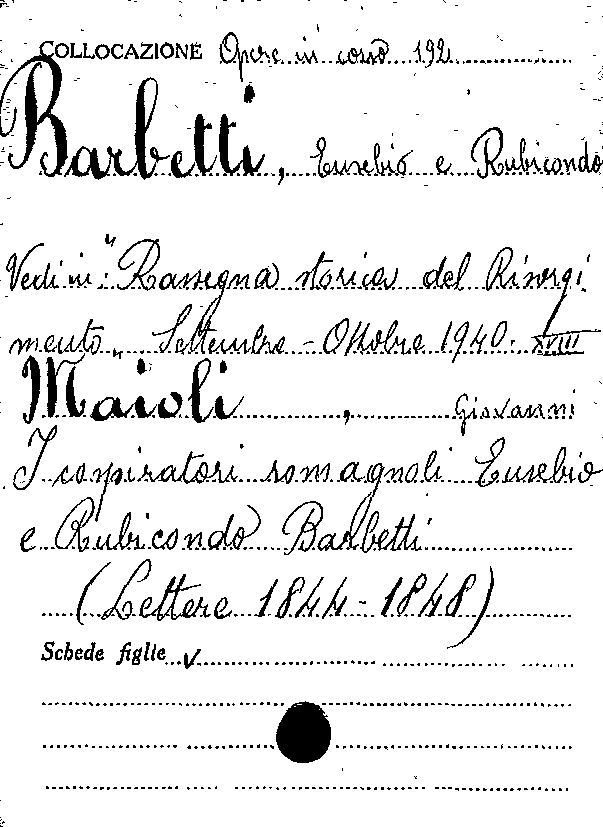 COLLOCAZIONE Opere in corso 192
Barbetti, Eusebio e Rubicondo
Vedi in: "Rassegna storica del Risorgi
mento" Settembre - Ottobre 1940. XVIII
Maioli, Giovanni
I cospiratori romagnoli Eusebio
e Rubicondo Barbetti
(Lettere 1844-1848)
Schede figlie v